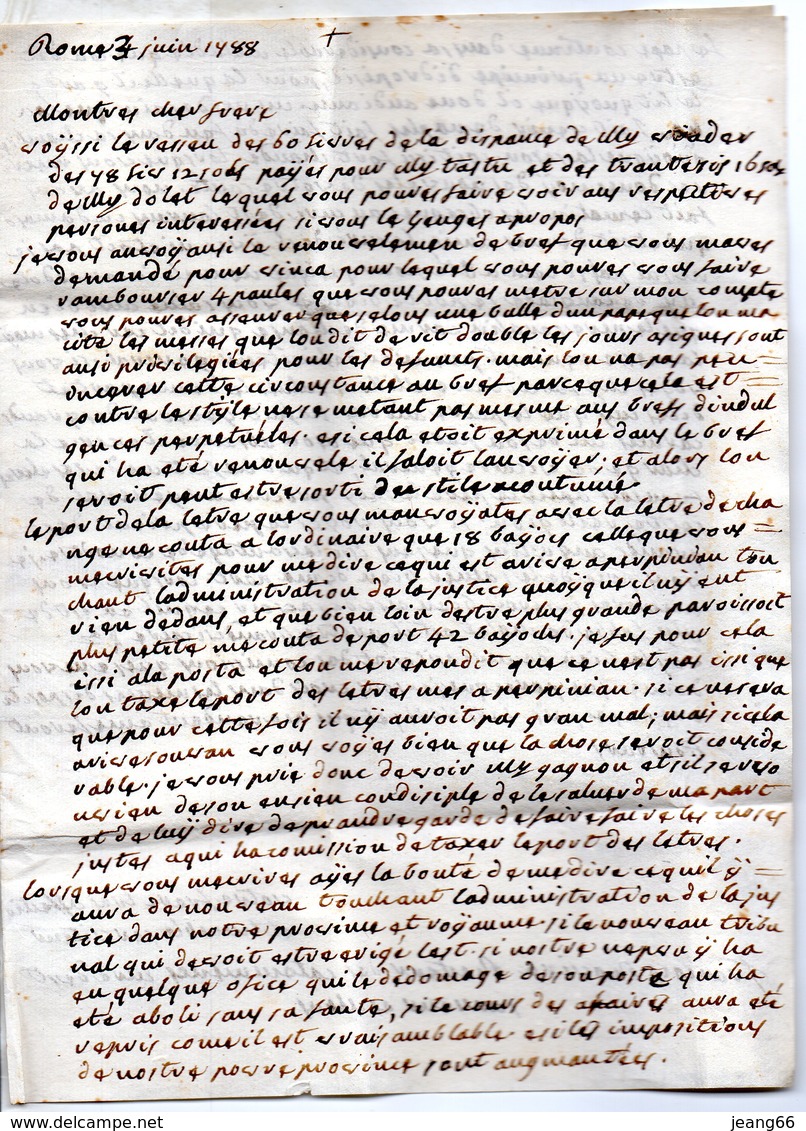 Rome 4 juin 1788 +
Montres cher frere
voÿssi le resseu des 60 livres de la dispance de Mÿ
des 48 livs 12 sols paÿés pour Mÿ tastu et des tranteris 16 sols
de Mÿ dolet lequel vous pouves faire voir aus respectives
persones interessées si vous le jeuges apropos
je vous anvoÿ ausi le renouvelemen de bref que vous maves
demandé pour vinca pour lequel vous pouves vous faire
rambourser 4 paules que vous pouves metre sur mon compte
vous pouves asseurer que selous une bulle dun pape que lon ma
cité les messes que lon dit de rit double les jours asignes sont
ausi privilegiées pour les defuncts. mais lon na pas peu =
incerer cette circonstance au bref parceque cela est =
contre le stÿle ne se metant pas mesme aus brefs dindul
gences perpetuéles. esi cela etoit exprimé dans le bref
qui ha eté renouvele il faloit lanvoÿer; et alors lon
seroit peut estre sorti du stile acoutumé.
le port de la letre que vous manvoÿates avec la letre de cha
nge ne couta a lordinaire que 18 baÿocs celle que vous =
mecrivites pour me dire ce qui est arive a perpinian tou
chant ladministration de la justice quoÿque il nÿ eut
rien dedans, et que bien loin destre plus grande paroissoit
plus petite me couta de port 42 baÿocks. je fus pour cela
issi ala posta et lon me repondit que ce nest pas issi que
lon taxe le port des letres mes a perpinian. si ce ne sera
que pour cette fois il nÿ auroit pas gran mal; mais si cela
arive souvan vous voÿes bien que la chose seroit conside
rable. je vous prie donc de voir Mÿ gagnon et sil se reso
uvien de son ensien condisiple de le saluer de ma part
et de luÿ dire de prandre garde de faire faire les choses
justes aqui ha comission de taxer le port des letres.
lors que vous mecrives aÿes la bonté de me dire ce quil ÿ =
aura de nouveau touchant ladministration de la jus
tice dans notre provinse et roÿaume. si le nouveau tribu
nal qui devoit estre erigé lest. si nostre nepveu ÿ ha
eu quelque ofice qui le dedomage de son poste qui ha
eté aboli sans sa faute, si le cours des afaires aura eté
repris comeil est vraisamblable. esi les impositions
de nostre povre provinse sont augmantées.
jeang66